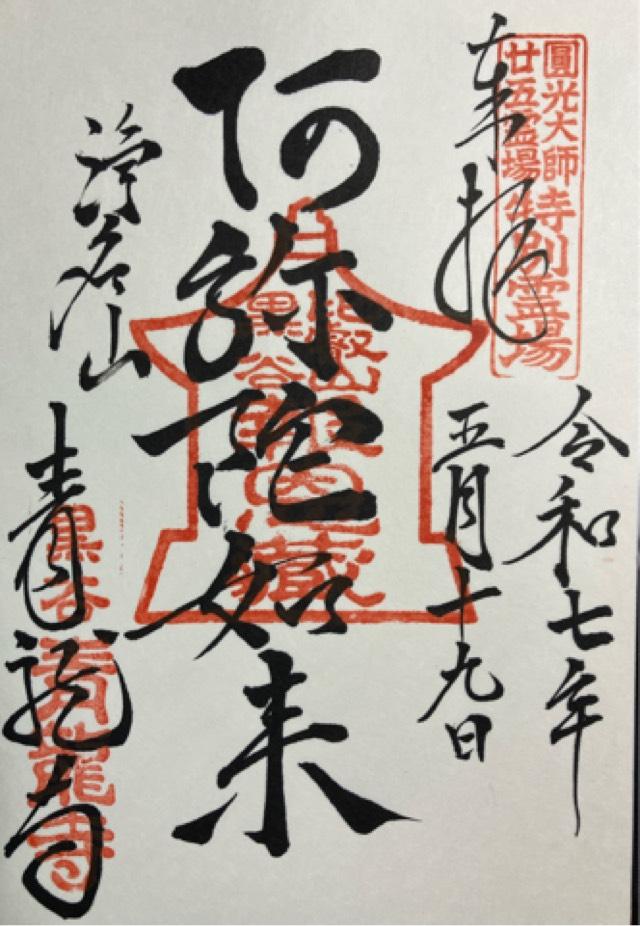 圓光大師
廿五霊場
特別霊場
奉拝
令和七年
五月十九日
阿弥陀如来
比叡山
黒谷
浄名山
青龍寺
黒谷
青龍寺